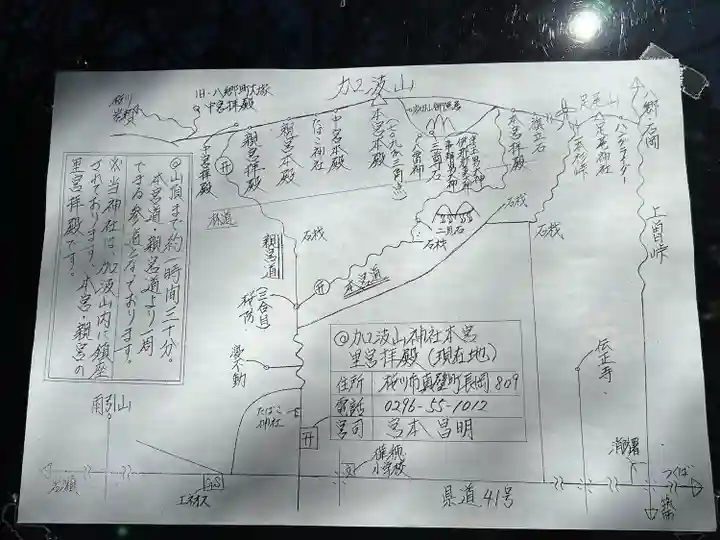 加波山
旧・八郷町大塚
中宮拝殿
中宮拝殿
親宮拝殿
親宮本殿
たばこ神社
中宮本殿
本宮本殿
(七〇九ｍ三角点)
三角石
本宮拝殿
旗立石
一本杉峠
足尾山
足尾神社
ハンググライダー
八郷石岡
上曽峠
林道
石栈
二見石
石栈
石栈
石栈
親宮道
本宮道
三合目
桜前
妻不動
たばこ神社
@山頂まで約一時間三十分。
本宮道・親宮道より一周
できる参道となっております。
※当神社は、加波山内に鎮座
されております、本宮・親宮の
里宮拝殿です。
@加波山神社本宮
里宮拝殿(現在地)
住所 桜川市真壁町長岡809
電話 0296-55-1012
宮司 宮本昌明
雨引山
岩瀬
GS
エネオス
樺穂
小学校
県道41号
伝正寺
消防署
つくば